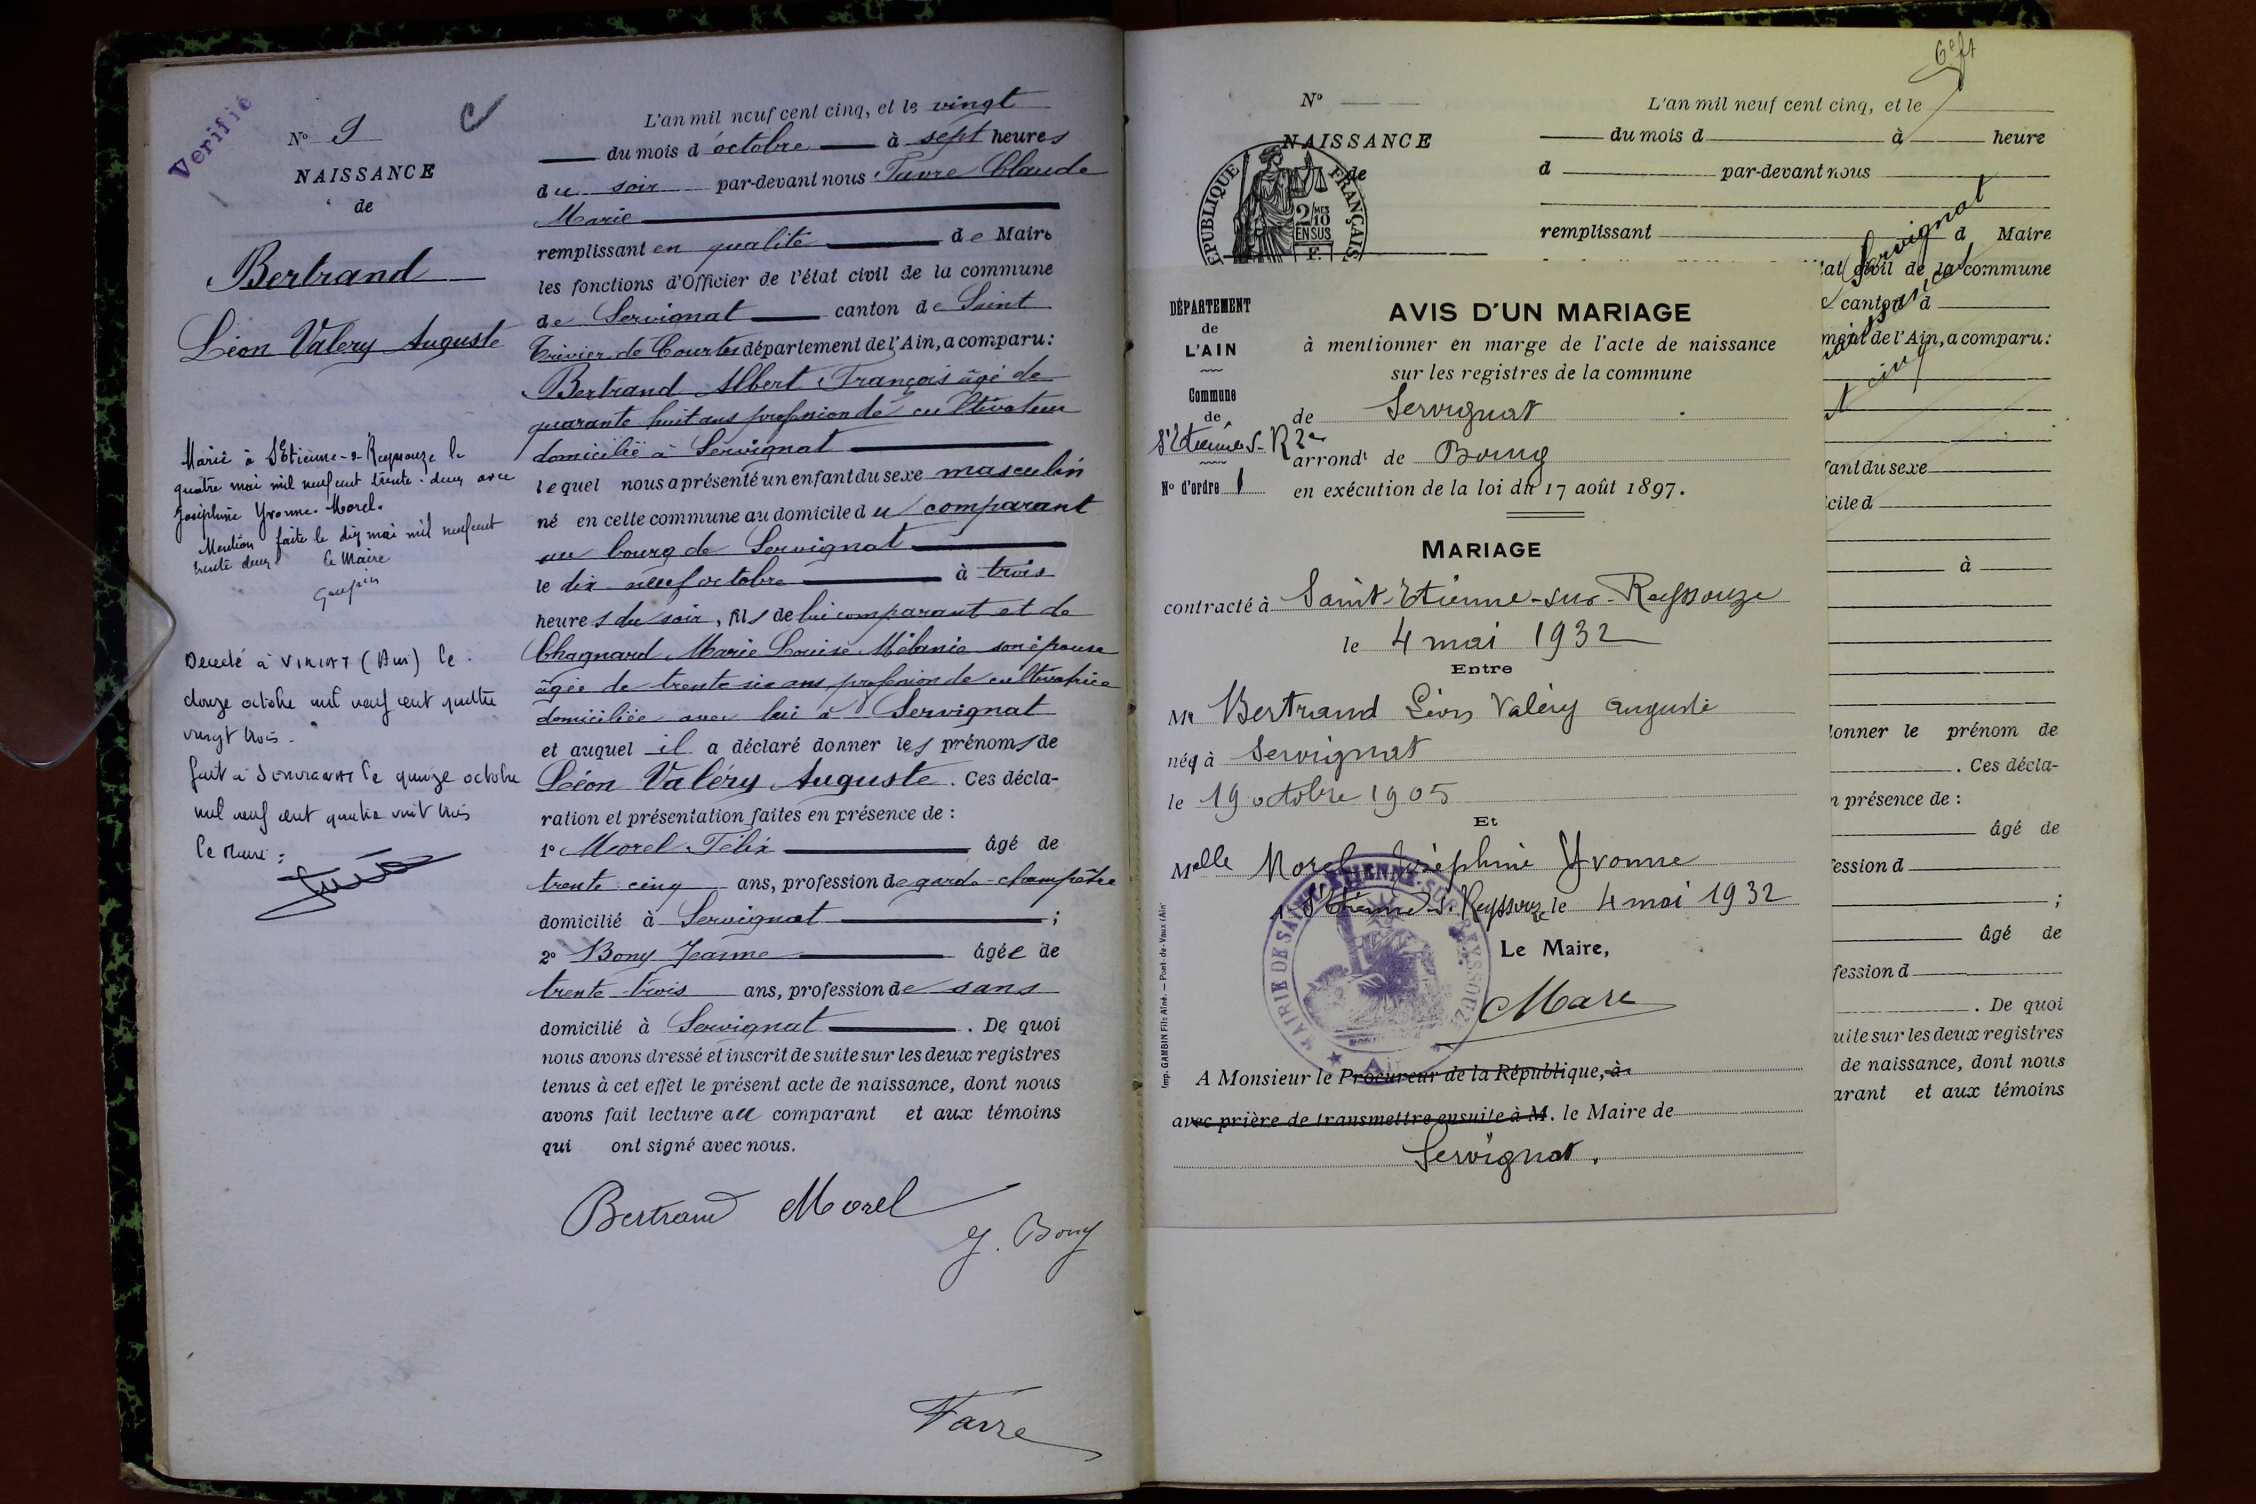 Verifié
Nº 9
NAISSANCE
de
Bertrand
Léon Valery Auguste
Marié à St Etienne-s-Reyssouze le
quatre mai mil neuf cent trente-deux avec
Joséphine Yvonne Morel.
Mention faite le dix mai mil neuf cent
trente deux Le Maire
Décédé à VIRIAT (Ain) le
douze octobre mil neuf cent quatre
vingt trois.
fait à SERVIGNAT le quinze octobre
mil neuf cent quatre vingt trois
Le Maire :
L'an mil neuf cent cinq, et le vingt
du mois d'octobre à sept heures
du soir par-devant nous Favre Claude
Marie
remplissant en qualité de Maire
les fonctions d'Officier de l'état civil de la commune
de Servignat canton de Saint
Trivier de Courtes département de l'Ain, a comparu :
Bertrand Albert François âgé de
quarante huit ans profession de cultivateur
domicilié à Servignat
lequel nous a présenté un enfant du sexe masculin
né en cette commune au domicile du comparant
au bourg de Servignat
le dix neuf octobre à trois
heures du soir, fils de lui comparant et de
Chagnard Marie Louise Mélanie son épouse
âgée de trente six ans profession de cultivatrice
domiciliée avec lui à Servignat
et auquel il a déclaré donner les prénoms de
Léon Valéry Auguste. Ces décla-
ration et présentation faites en présence de :
1º Morel Félix âgé de
trente cinq ans, profession de garde-champêtre
domicilié à Servignat ;
2º Bony Jeanne âgée de
trente trois ans, profession de sans
domicilié à Servignat. De quoi
nous avons dressé et inscrit de suite sur les deux registres
tenus à cet effet le présent acte de naissance, dont nous
avons fait lecture au comparant et aux témoins
qui ont signé avec nous.
Bertrand Morel
J. Bony
Favre
Nº
NAISSANCE
de
RÉPUBLIQUE FRANÇAISE
2/10 MES
EN SUS
F.
L'an mil neuf cent cinq, et le
du mois d à heure
d par-devant nous
remplissant d Maire
Servignat
état civil de la commune
canton d
ment de l'Ain, a comparu :
cinq
fant du sexe
cile d
à
donner le prénom de
. Ces décla-
n présence de :
âgé de
fession d
;
âgé de
fession d
. De quoi
uite sur les deux registres
de naissance, dont nous
arant et aux témoins
DÉPARTEMENT
de
L'AIN
Commune
de
St Etienne-s-Rze
Nº d'ordre 1
AVIS D'UN MARIAGE
à mentionner en marge de l'acte de naissance
sur les registres de la commune
de Servignat
arrondt de Bourg
en exécution de la loi du 17 août 1897.
MARIAGE
contracté à Saint-Etienne-sur-Reyssouze
le 4 mai 1932
Entre
Mr Bertrand Léon Valéry Auguste
né à Servignat
le 19 octobre 1905
Et
Melle Morel Joséphine Yvonne
A St Etienne-s-Reyssouze le 4 mai 1932
Le Maire,
MAIRIE DE SAINT-ETIENNE-SUR-REYSSOUZE
Ain
A Monsieur le Procureur de la République, à
avec prière de transmettre ensuite à M. le Maire de
Servignat.
Imp. GAMBIN Fils Aîné. — Pont-de-Vaux (Ain)